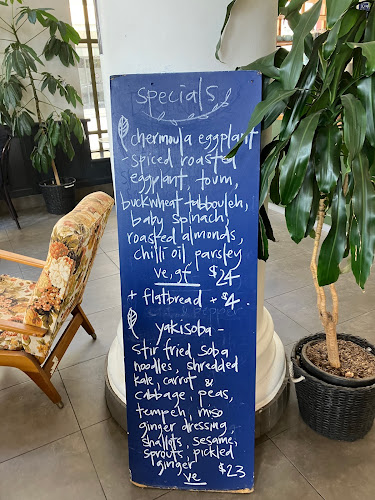 specials
chermoula eggplant
-spiced roasted
eggplant, toum,
buckwheat tabbouleh,
baby spinach,
roasted almonds,
chilli oil parsley
ve, gf $24
+ flatbread + $4.
yakisoba -
stir fried soba
noodles, shredded
kale, carrot &
cabbage, peas,
tempeh, miso
ginger dressing,
shallots, sesame,
sprouts, pickled
ginger
ve $23